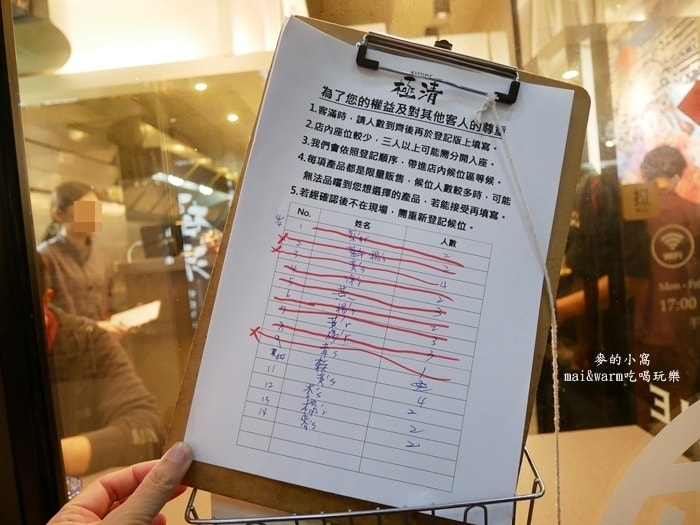 極清
為了您的權益及對其他客人的尊重
1.客滿時，請人數到齊後再於登記版上填寫。
2.店內座位較少，三人以上可能需分開入座。
3.我們會依照登記順序，帶進店內候位區等候。
4.每項產品都是限量販售，候位人數較多時，可能
無法品嚐到您想選擇的產品，若能接受再填寫。
5.若經確認後不在現場，需重新登記候位。
No. 姓名 人數
1 2
2 2
3 黃's 4
4 2
5 呂 3
6 楊's 2
7 黃'r 3
8 3
9 1
11 黃's 4
12 李's 2
13 2
14 2
WiFi
Mon - Fri
17:0
麥的小窩
mai&warm吃喝玩樂